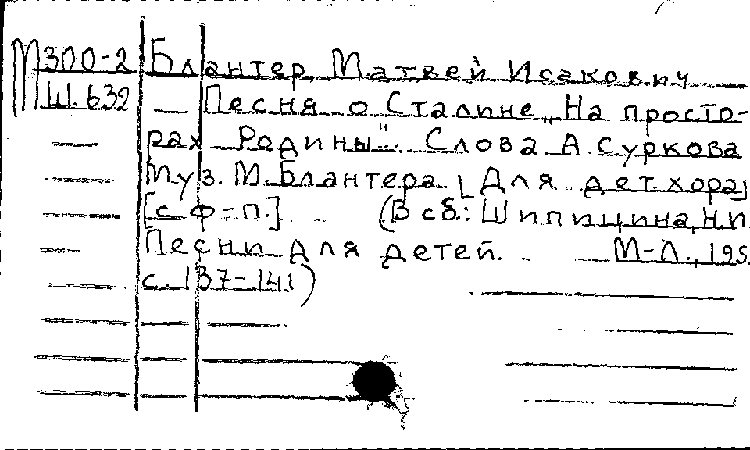 М300-2 Блантер, Матвей Исакович
Ш.632 Песня о Сталине „На просто-
рах Родины“. Слова А. Суркова
Муз. М. Блантера. [Для дет. хора]
[с ф-п.] (В сб.: Шипицина, Н.И.
Песни для детей. М-Л., 195
с. 137-141)